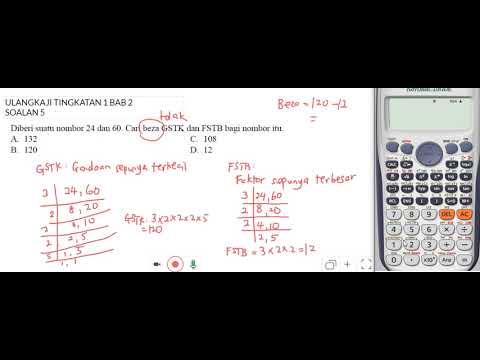 ULANGKAJI TINGKATAN 1 BAB 2
SOALAN 5
tolak
Beza = 120 - 12
=
Diberi suatu nombor 24 dan 60. Cari beza GSTK dan FSTB bagi nombor itu.
A. 132
C. 108
B. 120
D. 12
GSTK: Gandaan sepunya terkecil
3 24, 60
2 8, 20
2 4, 10
2 2, 5
5 1, 5
1, 1
GSTK: 3×2×2×2×5
=120
FSTB:
Faktor sepunya terbesar
3 24, 60
2 8, 20
2 4, 10
2, 5
FSTB = 3×2×2 = 12
7 8 9 DEL AC
4 5 6 × ÷
1 2 3 + -
0 . ×10ˣ Ans =